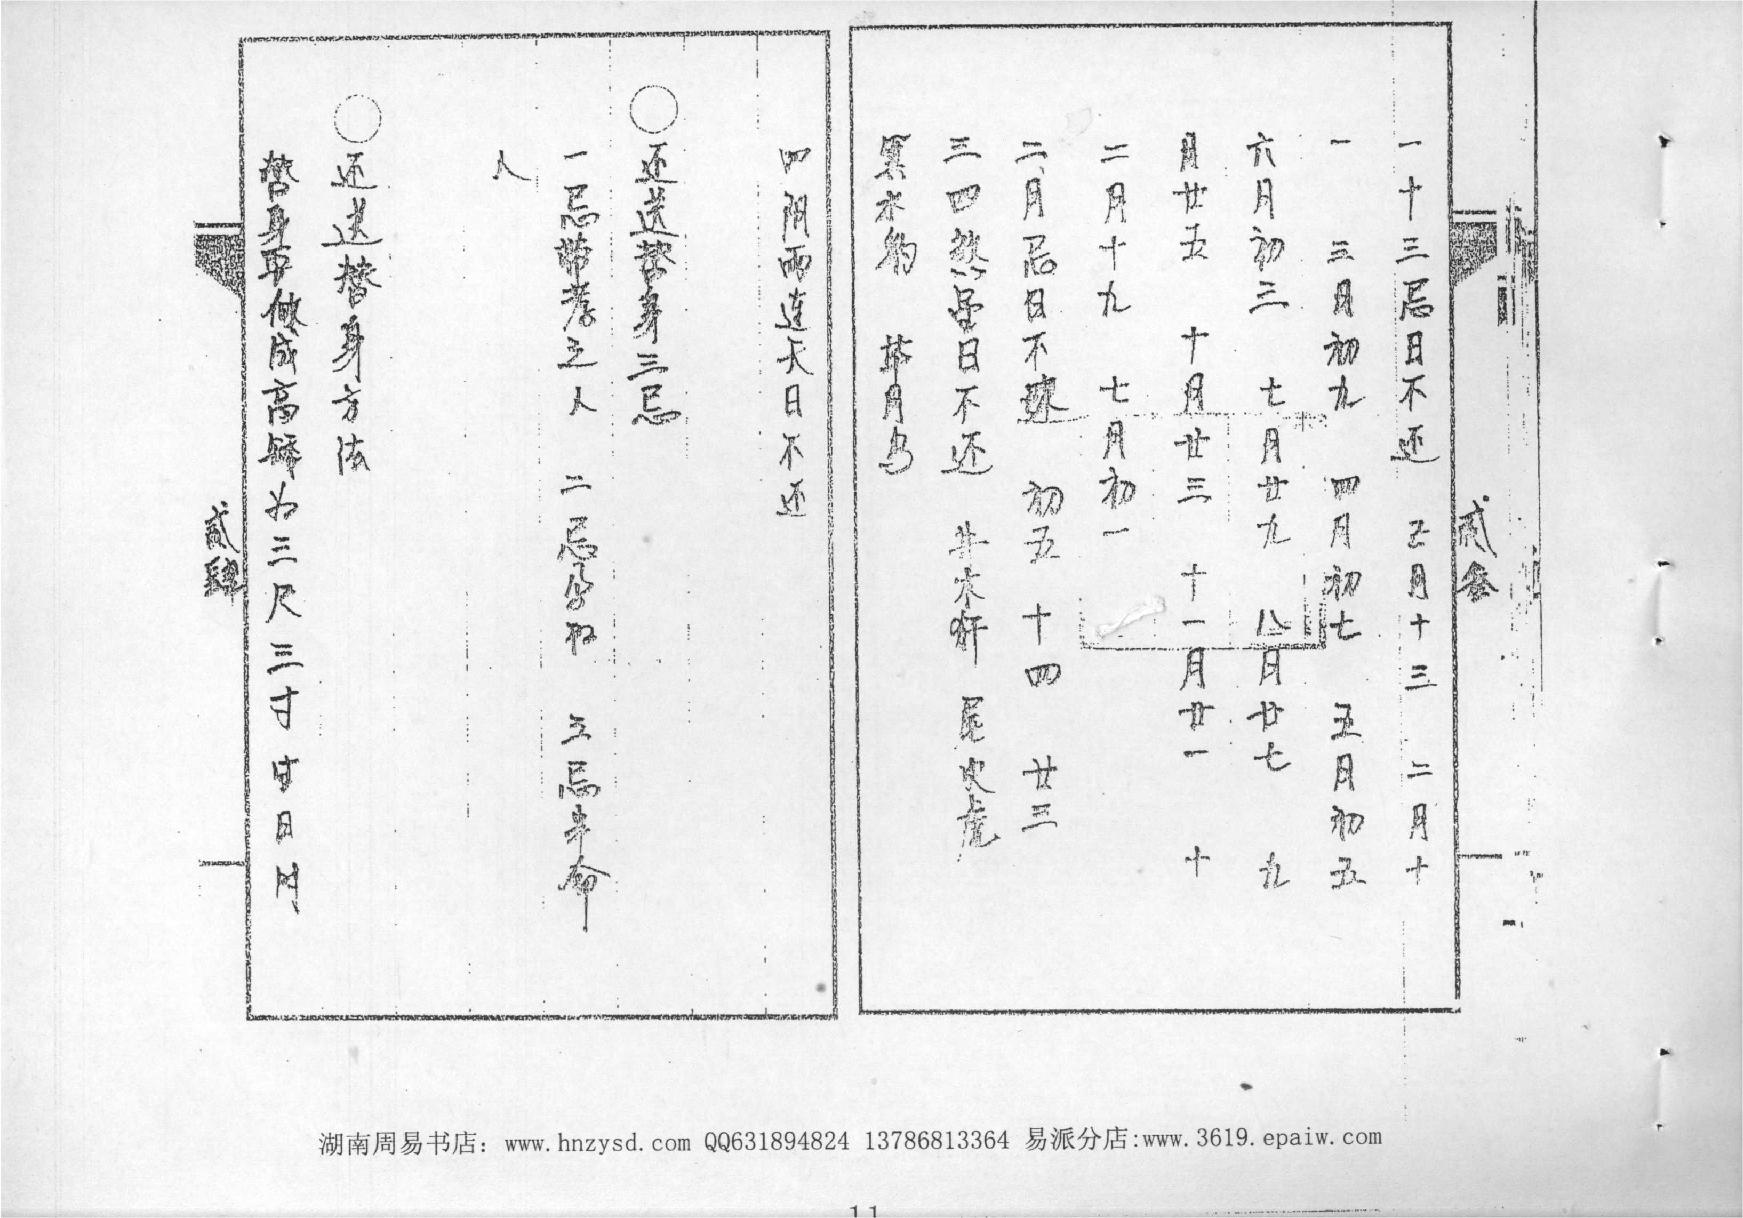 一十三忌日不还 正月十三 二月十
一 三月初九 四月初七 五月初五
六月初三 七月廿九 八月廿七 九
月廿五 十月廿三 十一月廿一 十
二月十九 七月初一
二月忌日不还 初五 十四 廿三
三四煞星日不还 斗木犴 尾火虎
箕水豹 毕月乌
贰叁
四阴雨连天日不还
○还送替身三忌
一忌带孝之人 二忌孕妇 三忌半命
人
○还送替身方法
替身草做成高矮为三尺三寸 日月
贰肆
湖南周易书店：www.hnzysd.com QQ631894824 13786813364 易派分店:www.3619.epaiw.com
11